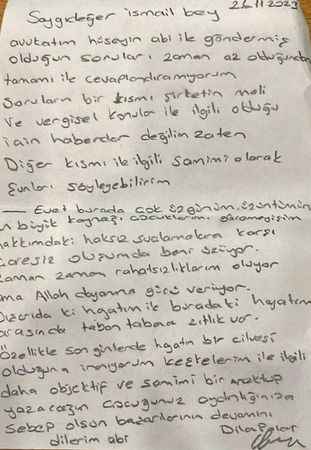 Saygıdeğer ismail bey 21.11.2023
avukatım hüseyin abi ile göndermiş
olduğun soruları zaman az olduğundan
tamamı ile cevaplandıramıyorum
Soruların bir kısmı şirketin mali
ve vergisel konular ile ilgili olduğu
için haberdar değilim zaten
Diğer kısmı ile ilgili samimi olarak
şunları söyleyebilirim
— Evet burada çok üzgünüm, üzüntümün
en büyük kaynağı çocuklarımı görememeyişim
hakkımdaki haksız suçlamalara karşı
çaresiz oluşumda beni üzüyor.
zaman zaman rahatsızlıklarım oluyor
ama Allah dayanma gücü veriyor.
Dışarıda ki hayatım ile buradaki hayatım
arasında taban tabana zıtlık var.
Özellikle son günlerde hayatın bir cilvesi
olduğuna inanıyorum keşkelerim ile ilgili
daha objektif ve samimi bir mektup
yazacağım çocuğunuz aydınlığınıza
sebep olsun başarılarının devamını
dilerim abi Dilan Polat